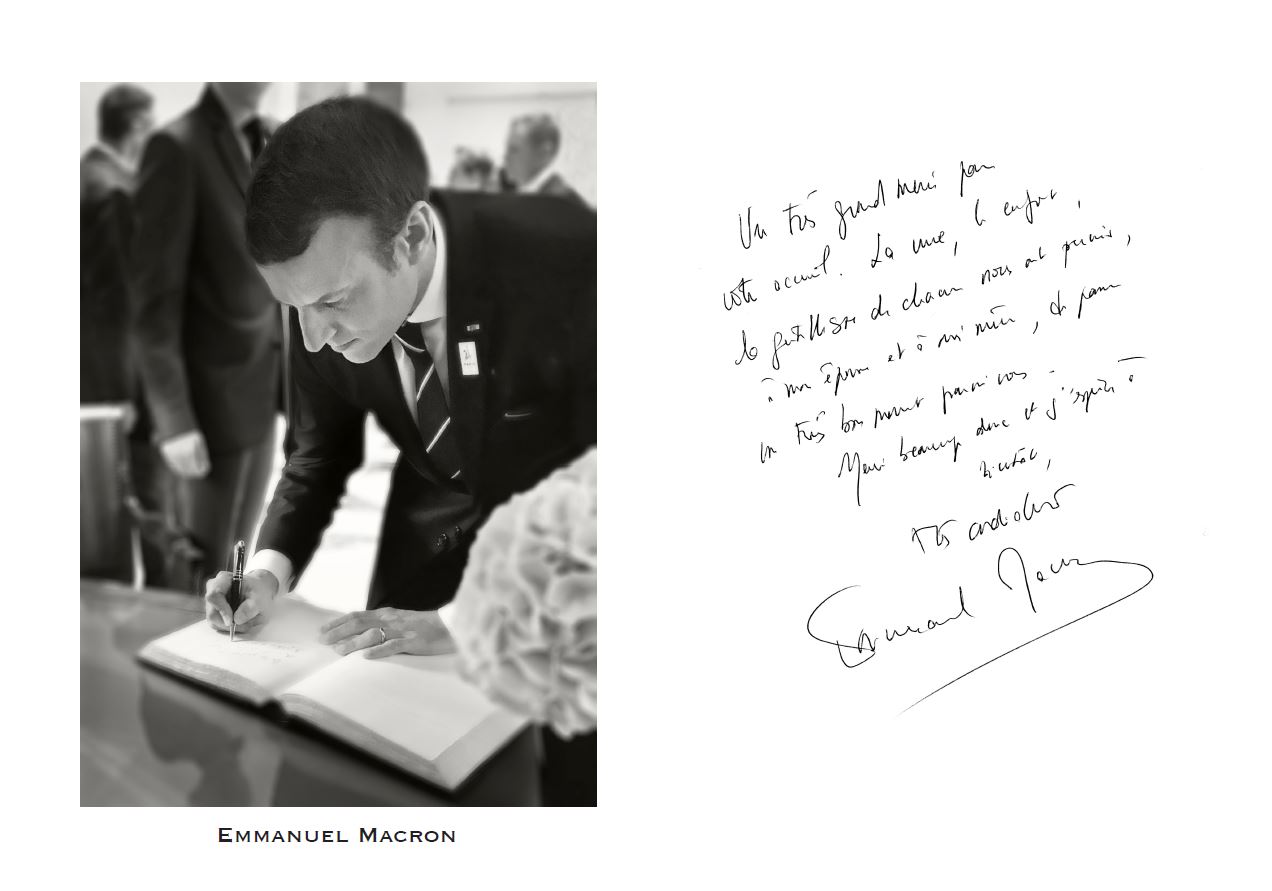 Un très grand merci pour
votre accueil. La vue, le confort,
la gentillesse de chacun nous ont permis,
à mon épouse et à moi même, de passer
un très bon moment parmi vous.
Merci beaucoup donc et j'espère à
bientôt,
Très cordialement
Emmanuel Macron
EMMANUEL MACRON